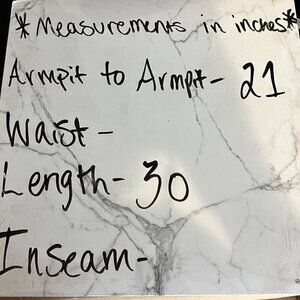 *Measurements in inches*
Armpit to Armpit- 21
Waist-
Length- 30
Inseam-